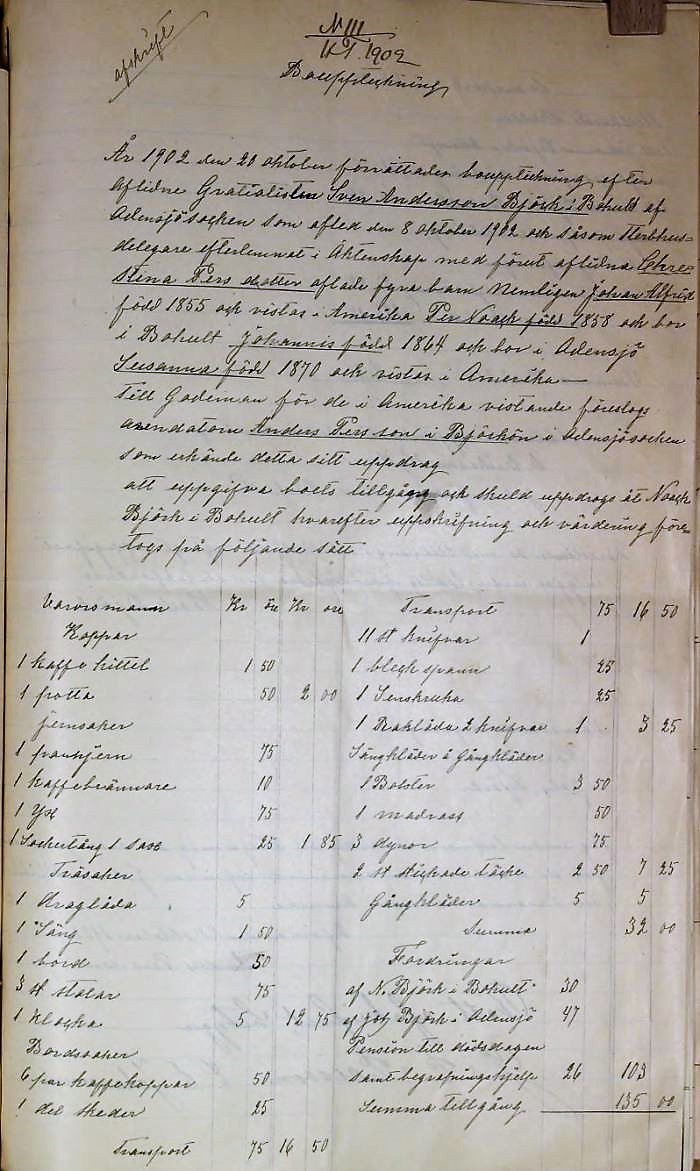 afskrift
N III
KT. 1902
Bouppteckning
År 1902 den 20 oktober förrättades bouppteckning efter
aflidne Gratialisten Sven Andersson Björk i Bohult af
Ådensjösocken som afled den 8 oktober 1902 och såsom sterbhus-
delegare efterlemnat i Äktenskap med förut aflidna Chre-
stina Pers dotter aflade fyra barn Nemligen Johan Alfrid
född 1855 och vistas i Amerika Per Noack född 1858 och bor
i Bohult Johannis född 1864 och bor i Adensjö
Susanna född 1870 och vistas i Amerika —
till Godeman för de i Amerika vistande föreslogs
arendatorn Anders Pers son i Björkön i Adensjösocken
som erkände detta sitt uppdrag
att uppgifva boets tillgång och skuld uppdrogs åt Noack
Björk i Bohult hvarefter uppskrifning och värdering före-
togs på följande sätt
Kr öre Kr öre
Koppar
1 kaffe kittel 1 50
1 potta 50 2 00
Jernsaker
1 75
1 kaffebrännare 10
1 Yx 75
1 Sockertång 1 sax 25 1 85
Träsaker
1 draglåda 5
1 Säng 1 50
1 bord 50
3 st stolar 75
1 klocka 5 12 75
Bordssaker
6 par kaffekoppar 50
1 del skeder 25
Transport 75 16 50
Transport 75 16 50
11 st knifvar 1
1 bleck spann 25
1 25
1 Raklåda 2 knifvar 1 3 25
Sängkläder å Gångkläder
1 Bolster 3 50
1 madrass 50
3 dynor 75
2 st stickade täcke 2 50 7 25
Gångkläder 5 5
Summa 32 00
Fordringar
af N. Björk i Bohult 30
af Joh Björk i Adensjö 47
Pension till dödsdagen
samt begrafningshjelp 26 103
Summa tillgång 135 00